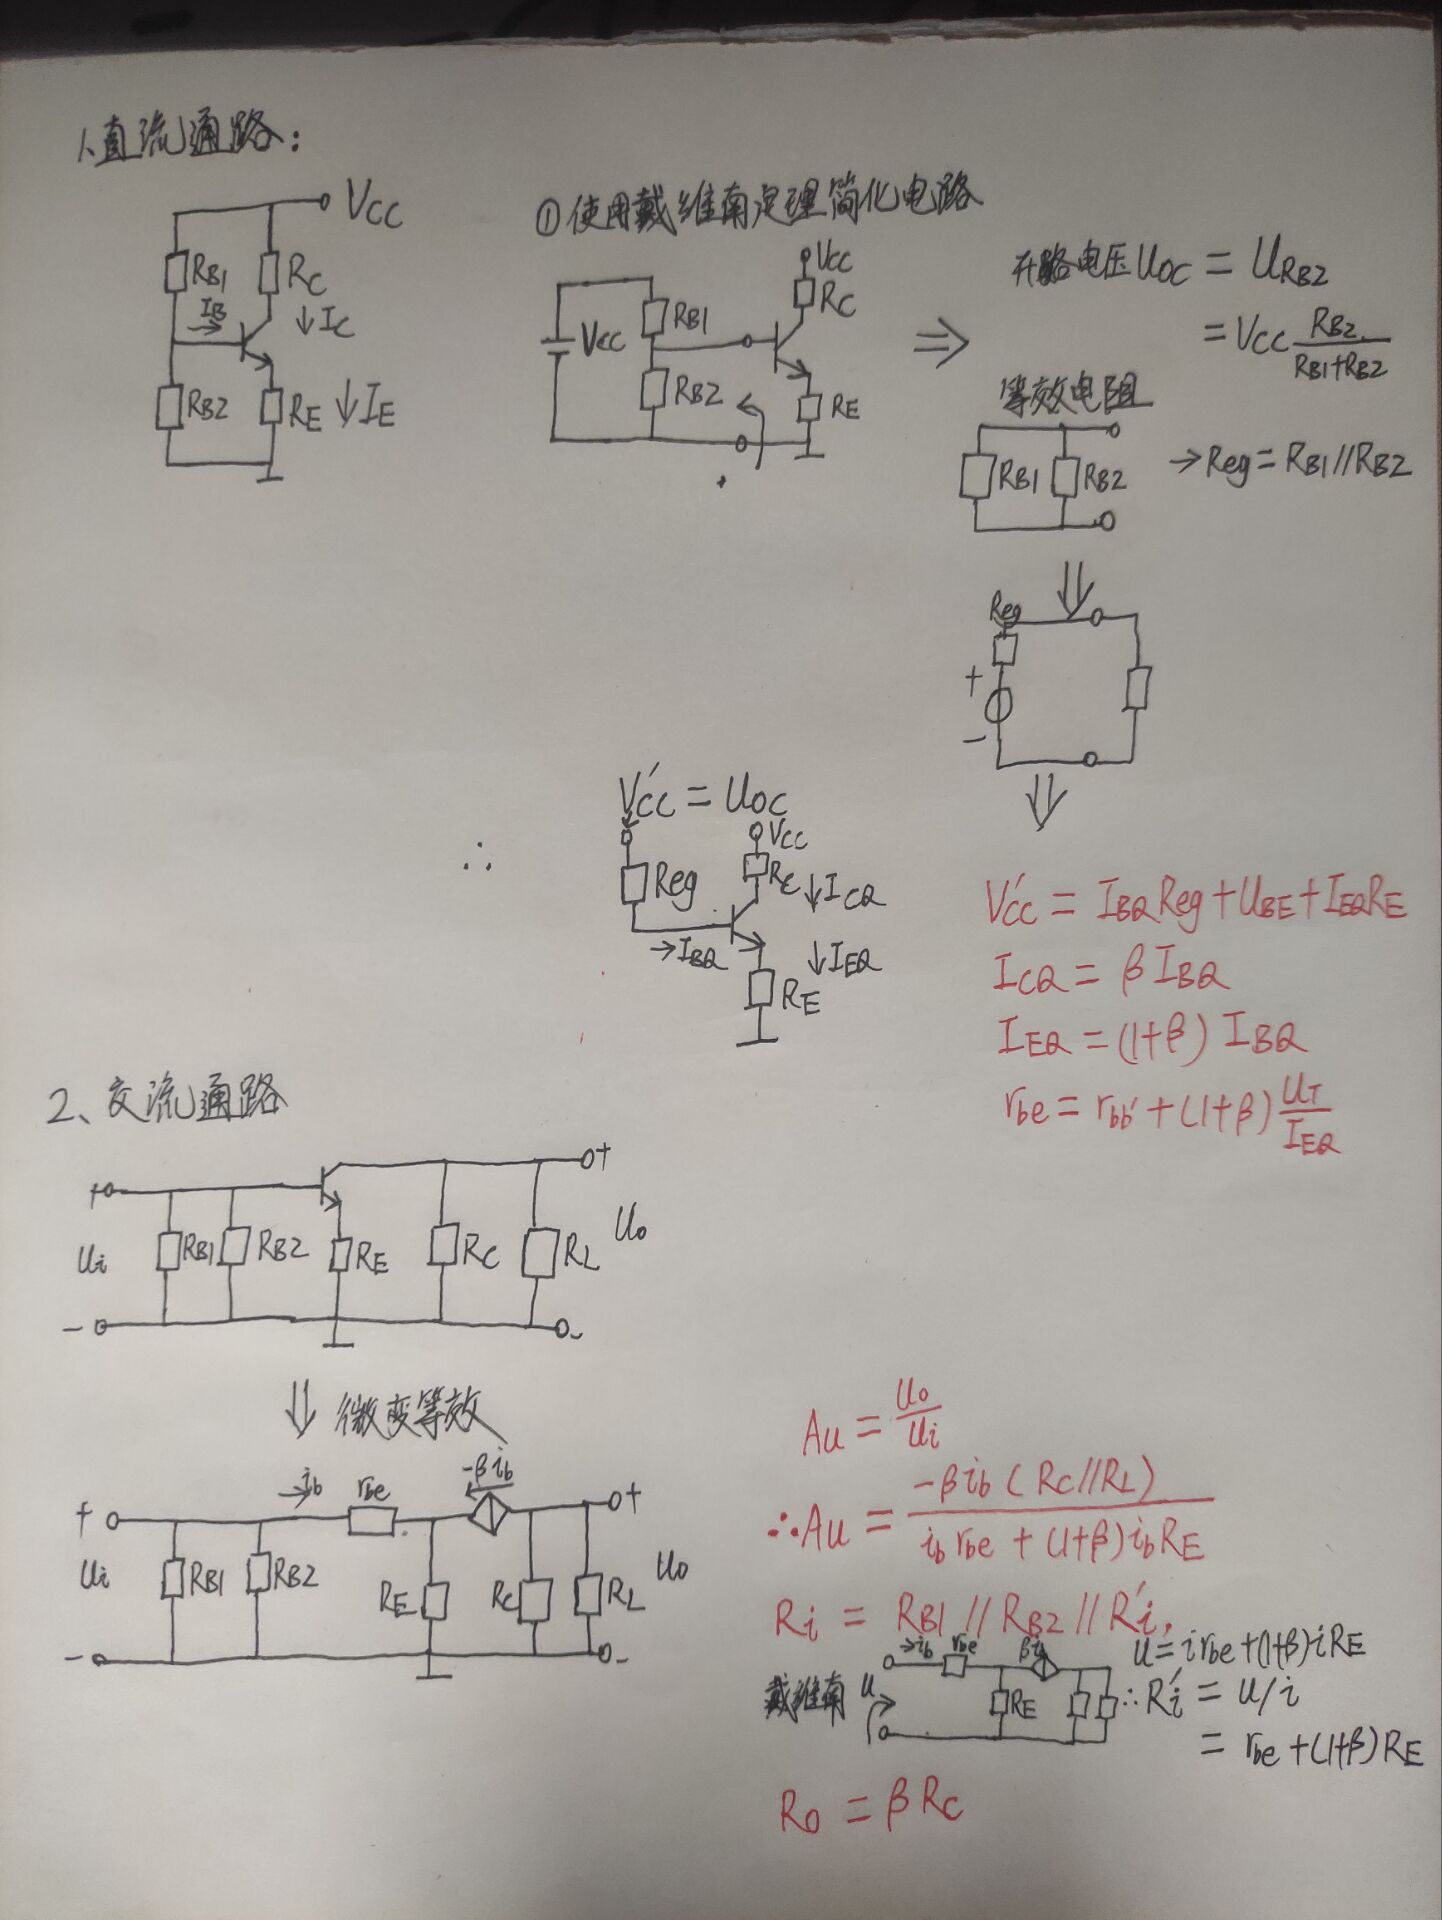 1、直流通路：
VCC
RB1
RC
IB
↓IC
RB2
RE
↓IE
①使用戴维南定理简化电路
VCC
RC
RB1
VCC
RB2
RE
开路电压UOC = URB2
= VCC RB2/(RB1+RB2)
等效电阻
RB1
RB2
→Reg = RB1//RB2
Reg
+
-
∴
V'CC = UOC
VCC
Reg
RC
↓ICQ
→IBQ
↓IEQ
RE
V'CC = IBQReg+UBE+IEQRE
ICQ = βIBQ
IEQ = (1+β) IBQ
rbe = rbb' + (1+β) UT/IEQ
2、交流通路
+
+
Ui
RB1
RB2
RE
RC
RL
Uo
-
-
⇓ 微变等效
ib
rbe
-βib
+
+
Ui
RB1
RB2
RE
RC
RL
Uo
-
-
Au = Uo/Ui
∴Au = -βib (RC//RL)/(ib rbe + (1+β)ibRE)
Ri = RB1 // RB2 // R'i,
→ib
rbe
βib
u = irbe+(1+β)iRE
戴维南
u
RE
∴R'i = u/i
= rbe +(1+β)RE
Ro = βRC